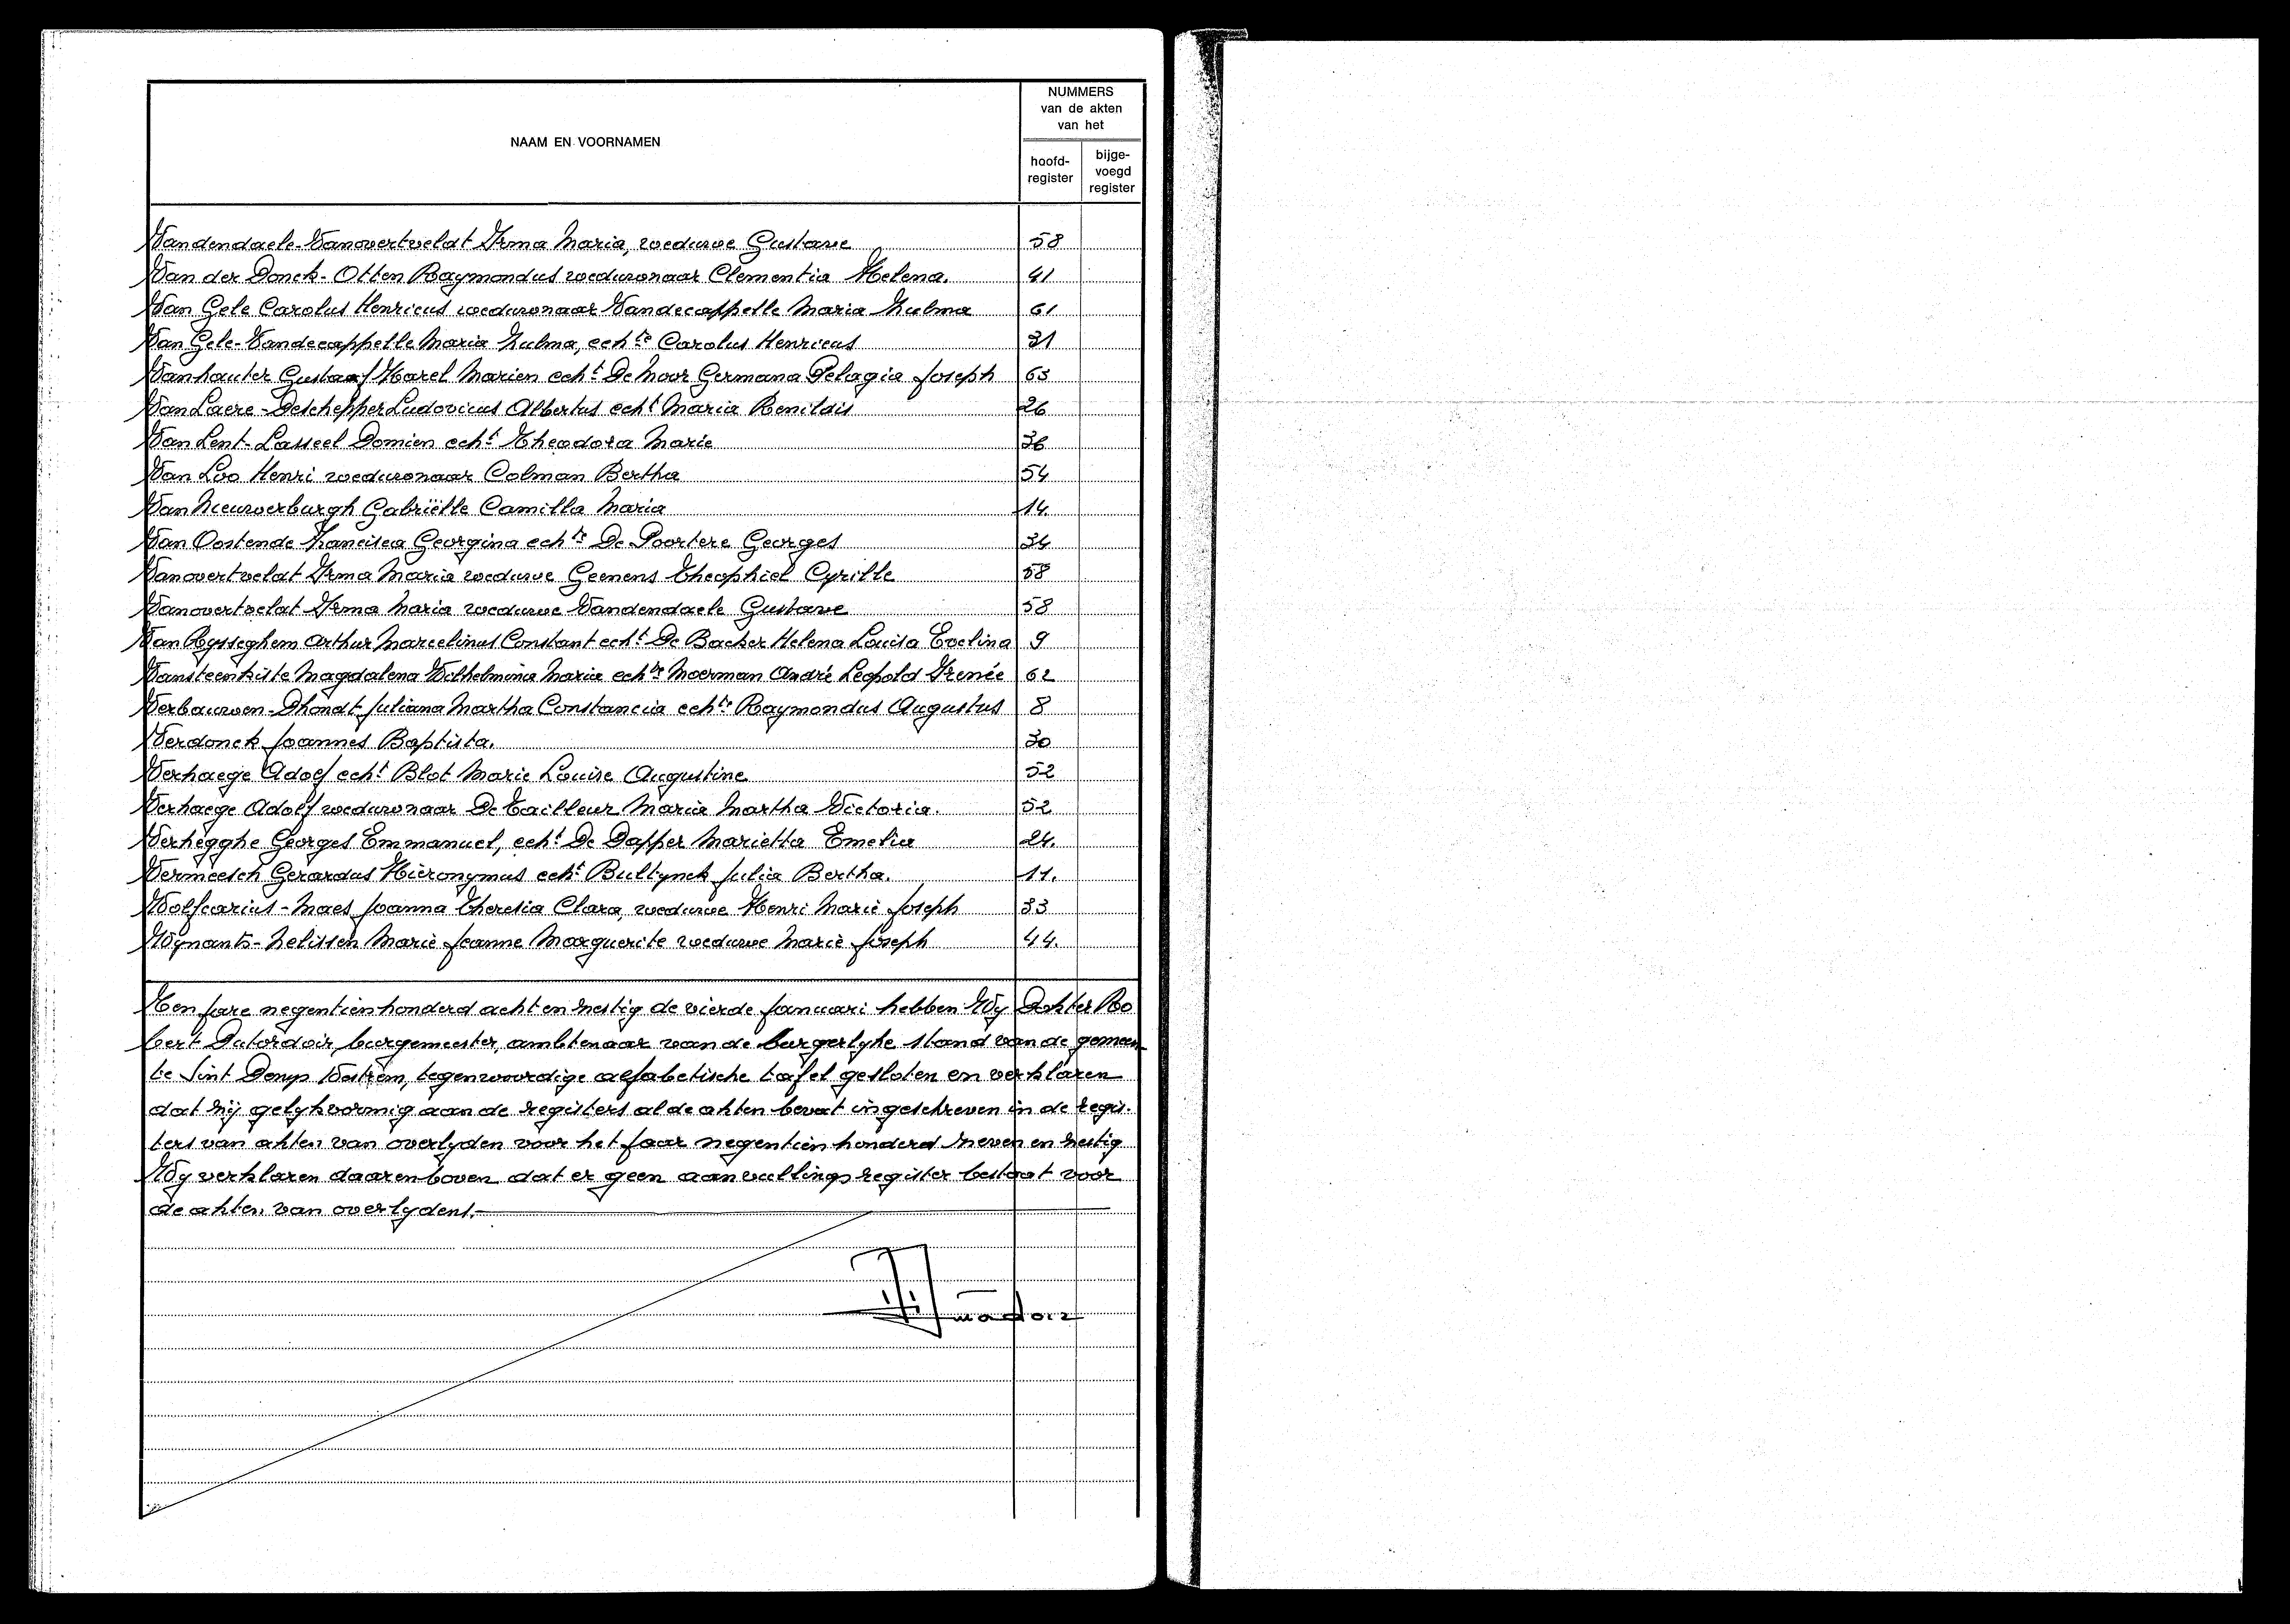 NAAM EN VOORNAMEN
NUMMERS
van de akten
van het
hoofd-
register
bijge-
voegd
register
Vandendaele-Vanovertveldt Irma Maria, weduwe Gustave 58
Van der Donck-Otten Raymondus weduwnaar Clementia Helena. 41
Van Gele Carolus Henricus weduwnaar Vandecappelle Maria Zulma 61
Van Gele-Vandecappelle Maria Zulma, echte Carolus Henricus 31
Vanhauter Gustaaf Karel Marien echt De Moor Germana Pelagia Joseph 63
Van Laere-Deschepper Ludovicus Albertus echt Maria Renildis 26
Van Lent-Lasseel Domien echt Theodora Marie 36
Van Loo Henri weduwnaar Colman Bertha 54
Van Nieuwerburgh Gabriëlle Camilla Maria 14.
Van Oostende Francisca Georgina echte De Poortere Georges 34
Vanovertveldt Irma Maria weduwe Geenens Theophiel Cyrille 58
Vanovertveldt Irma Maria weduwe Vandendaele Gustave 58
Van Rysseghem Arthur Marcelinus Constant echt De Backer Helena Louisa Evelina 9
Vansteenkiste Magdalena Wilhelmina Maria echte Moerman André Leopold Irenée 62
Verbauwen-Dhondt Juliana Martha Constancia echte Raymondus Augustus 8
Verdonck Joannes Baptista. 30
Verhaege Adolf echt Blot Marie Louise Augustine 52
Verhaege Adolf weduwnaar De Tailleur Maria Martha Victoria. 52
Verhegghe Georges Emmanuel, echt De Dapper Marietta Emelia 24.
Vermeesch Gerardus Hieronymus echt Bultynck Julia Bertha. 11.
Wolfcarius-Maes Joanna Theresia Clara, weduwe Henri Marie Joseph 33
Wynants-Nelissen Marie Jeanne Marguerite weduwe Marie Joseph 44.
Ten jare negentienhonderd acht en zestig de vierde januari hebben Wy Dokter Ro
bert Dutordoir, burgemeester, ambtenaar van de burgerlyke stand van de gemeen
te Sint Denys Westrem, tegenwoordige alfabetische tafel gesloten en verklaren
dat zij gelykvormig aan de registers al de akten bevat ingeschreven in de regis-
ters van akten van overlyden voor het jaar negentien honderd zeven en zestig
Wy verklaren daarenboven dat er geen aanvullings register bestaat voor
de akten van overlydens.